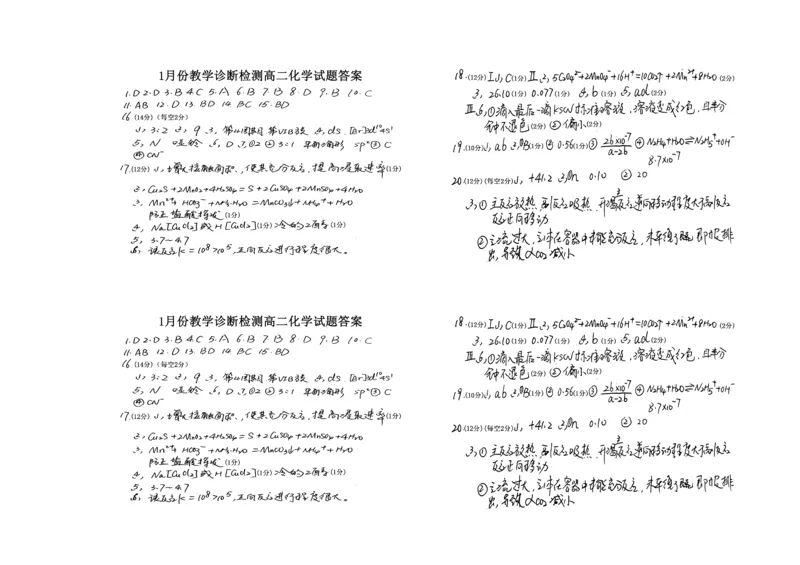 1月份教学诊断检测高二化学试题答案
1.D 2.D 3.B 4.C 5.A 6.B 7.B 8.D 9.B 10.C
11.AB 12.D 13.BD 14.BC 15.BD
16 (14分) (每空2分)
1, 3:2 2, 9 3, 第四周期 第ⅥB族 4, ds. [Ar]3d¹⁰4s¹
5, N 6, D 7, ① 2 ② 3:1 sp² ③ C
④ CN⁻
17.(12分) 1, 增大接触面积, 使其充分反应, 提高浸取速率(1分)
2, Cu₂S+2MnO₂+4H₂SO₄=S+2CuSO₄+2MnSO₄+4H₂O
3, Mn²⁺+HCO₃⁻+NH₃·H₂O=MnCO₃↓+NH₄⁺+H₂O
(1分)
4, Na[CuCl₂]或H[CuCl₂](1分) (1分)
5, 3.7~4.7
6, 该反应K=10⁸>10⁵,正向反应进行程度很大。
18.(12分) Ⅰ 1, C(1分) Ⅱ 2, 5C₂O₄²⁻+2MnO₄⁻+16H⁺=10CO₂↑+2Mn²⁺+8H₂O (2分)
3, 26.10(1分) 0.077(1分) 4, b(1分) 5, ad(2分)
Ⅲ 6, ①滴入最后一滴KSCN标准溶液, 溶液变成红色, 且半分
钟不退色(2分) ②偏小(2分)
19.(10分) 1, ab 2, (1分) ② 0.56(1分) ③ 2b×10⁻⁷/a-2b ④ N₂H₄+H₂O⇌N₂H₅⁺+OH⁻
8.7×10⁻⁷
20 (12分) (每空2分) 1, +41.2 2, ① 0.10 ② 20
3, ① 主反应放热, 副反应吸热, 升温主反应逆向移动程度大于副反应
反应正向移动
②流速过大, 气体在容器中未能充分反应, 即被排
出, 导致αCO₂减小
1月份教学诊断检测高二化学试题答案
1.D 2.D 3.B 4.C 5.A 6.B 7.B 8.D 9.B 10.C
11.AB 12.D 13.BD 14.BC 15.BD
16 (14分) (每空2分)
1, 3:2 2, 9 3, 第四周期 第ⅥB族 4, ds. [Ar]3d¹⁰4s¹
5, N 6, D 7, ① 2 ② 3:1 sp² ③ C
④ CN⁻
17.(12分) 1, 增大接触面积, 使其充分反应, 提高浸取速率(1分)
2, Cu₂S+2MnO₂+4H₂SO₄=S+2CuSO₄+2MnSO₄+4H₂O
3, Mn²⁺+HCO₃⁻+NH₃·H₂O=MnCO₃↓+NH₄⁺+H₂O
(1分)
4, Na[CuCl₂]或H[CuCl₂](1分) (1分)
5, 3.7~4.7
6, 该反应K=10⁸>10⁵,正向反应进行程度很大。
18.(12分) Ⅰ 1, C(1分) Ⅱ 2, 5C₂O₄²⁻+2MnO₄⁻+16H⁺=10CO₂↑+2Mn²⁺+8H₂O (2分)
3, 26.10(1分) 0.077(1分) 4, b(1分) 5, ad(2分)
Ⅲ 6, ①滴入最后一滴KSCN标准溶液, 溶液变成红色, 且半分
钟不退色(2分) ②偏小(2分)
19.(10分) 1, ab 2, (1分) ② 0.56(1分) ③ 2b×10⁻⁷/a-2b ④ N₂H₄+H₂O⇌N₂H₅⁺+OH⁻
8.7×10⁻⁷
20 (12分) (每空2分) 1, +41.2 2, ① 0.10 ② 20
3, ① 主反应放热, 副反应吸热, 升温主反应逆向移动程度大于副反应
反应正向移动
②流速过大, 气体在容器中未能充分反应, 即被排
出, 导致αCO₂减小